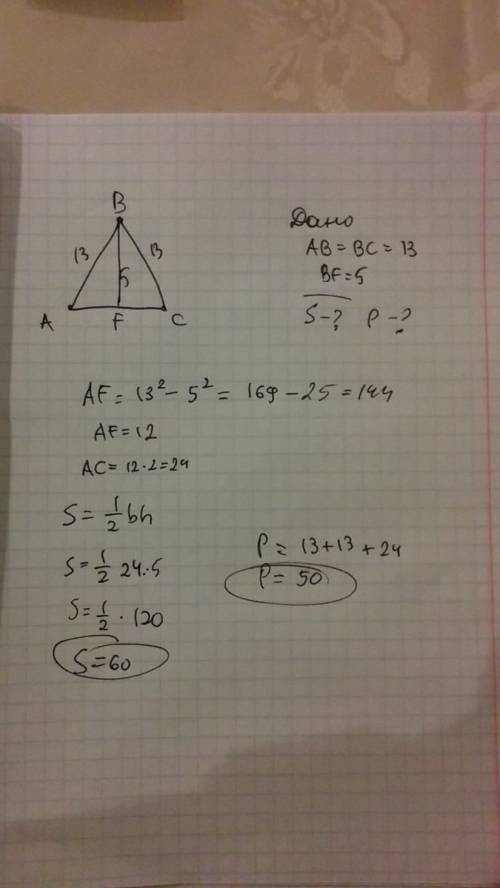 B
13 13
5
A F C
Дано
AB = BC = 13
BF = 5
S - ? P - ?
AF = 13² - 5² = 169 - 25 = 144
AF = 12
AC = 12 · 2 = 24
S = 1/2 bh
S = 1/2 24 · 5
S = 1/2 · 120
S = 60
P = 13 + 13 + 24
P = 50